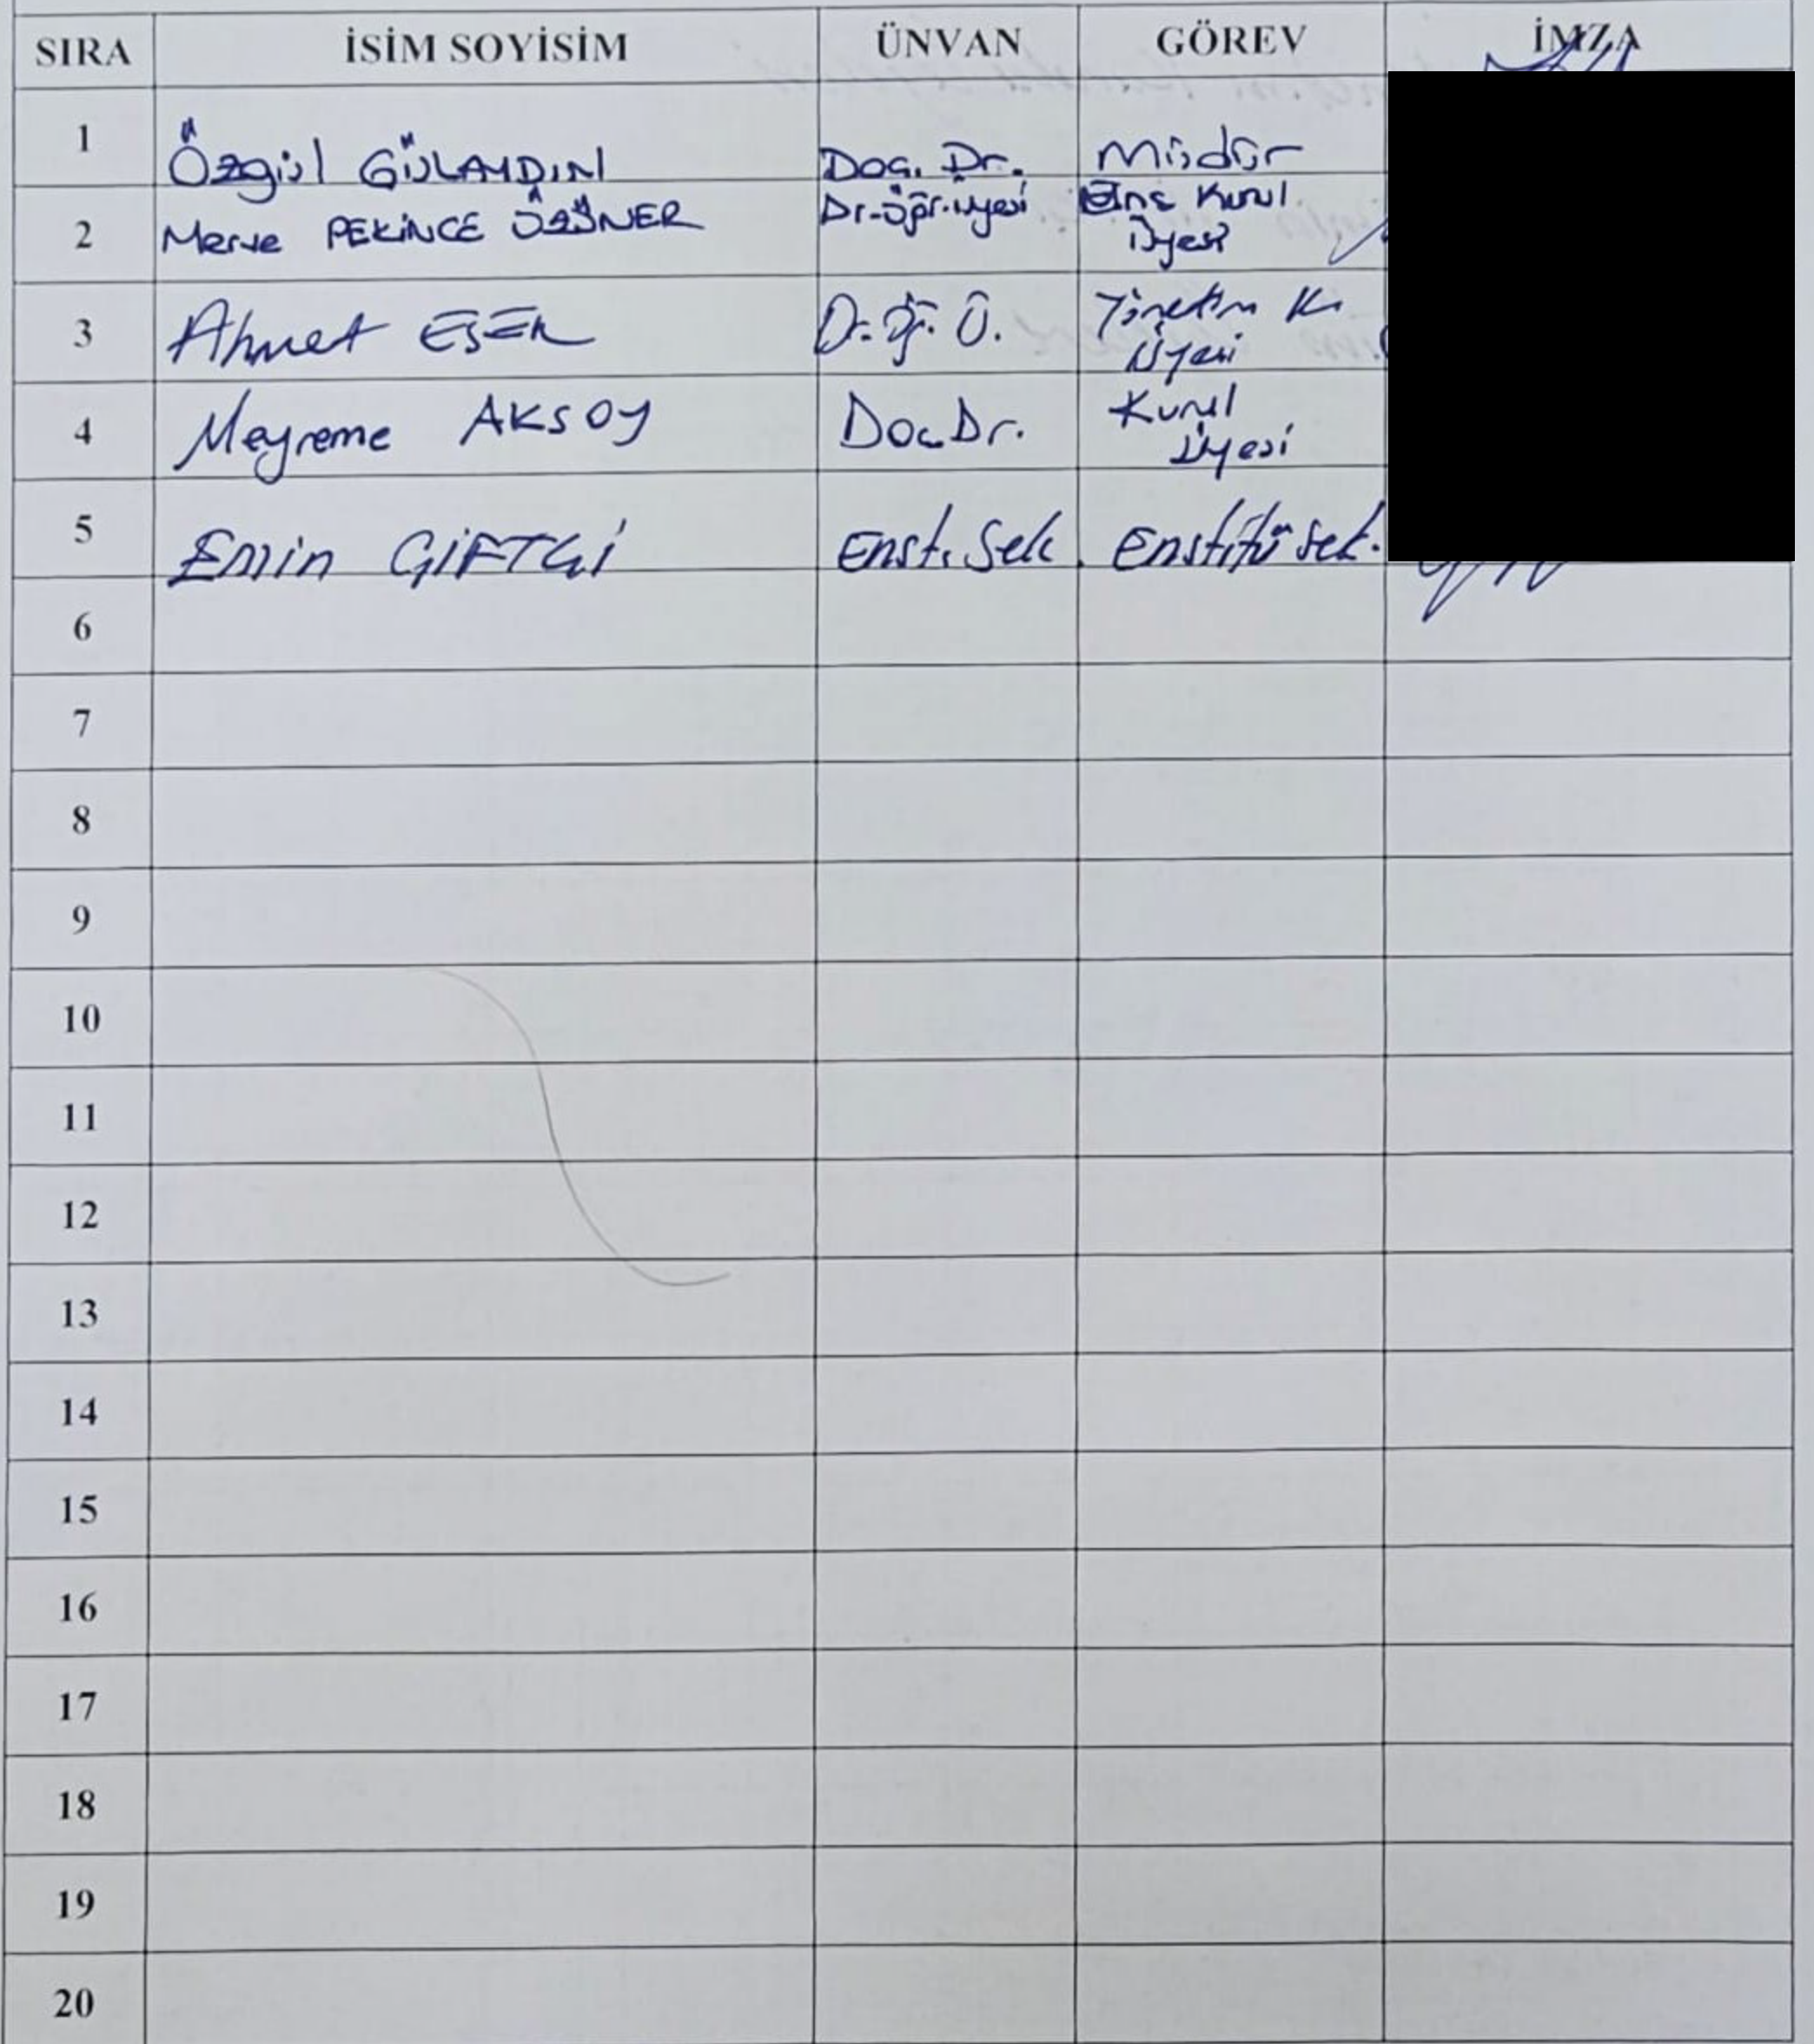 SIRA İSİM SOYİSİM ÜNVAN GÖREV İMZA
1 Özgül GÜLAYDIN Doç. Dr. Müdür
2 Merve PEKİNCE ÖZÖNER Dr. Öğr. Üyesi Ens Kurul
Üyesi
3 Ahmet EŞER Dr. Öğ. Ü. Yönetim K.
Üyesi
4 Meyreme AKSOY Doç Dr. Kurul
Üyesi
5 Emin ÇİFTÇİ Enst. Sek. Enstitü Sek.
6
7
8
9
10
11
12
13
14
15
16
17
18
19
20